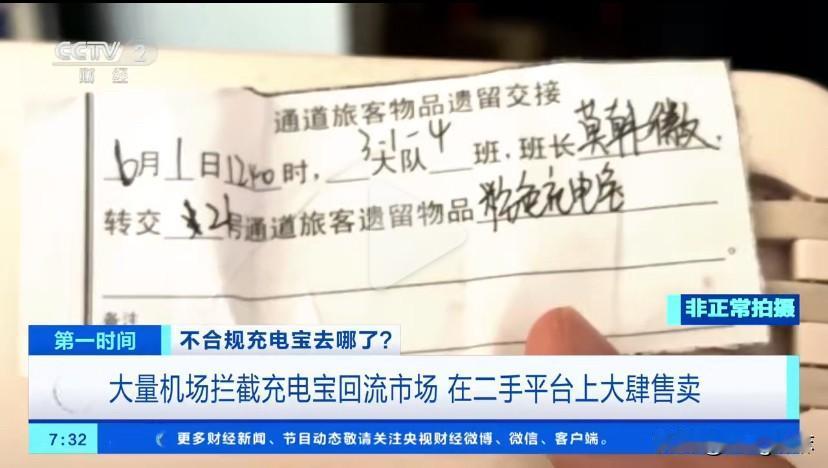 CCTV 2
财经
通道旅客物品遗留交接
6月1日1240时, 3-1-4大队 班, 班长莫韩
转交 21号通道旅客遗留物品 粉色充电宝
。
备注
非正常拍摄
第一时间 不合规充电宝去哪了?
大量机场拦截充电宝回流市场 在二手平台上大肆售卖
7:32 更多财经新闻、节目动态敬请关注央视财经微博、微信、客户端。